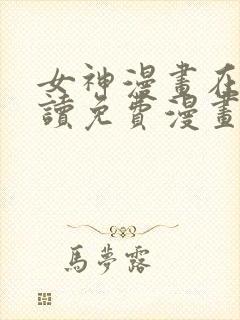 女神漫畫在
讀免費漫畫
馬夢露